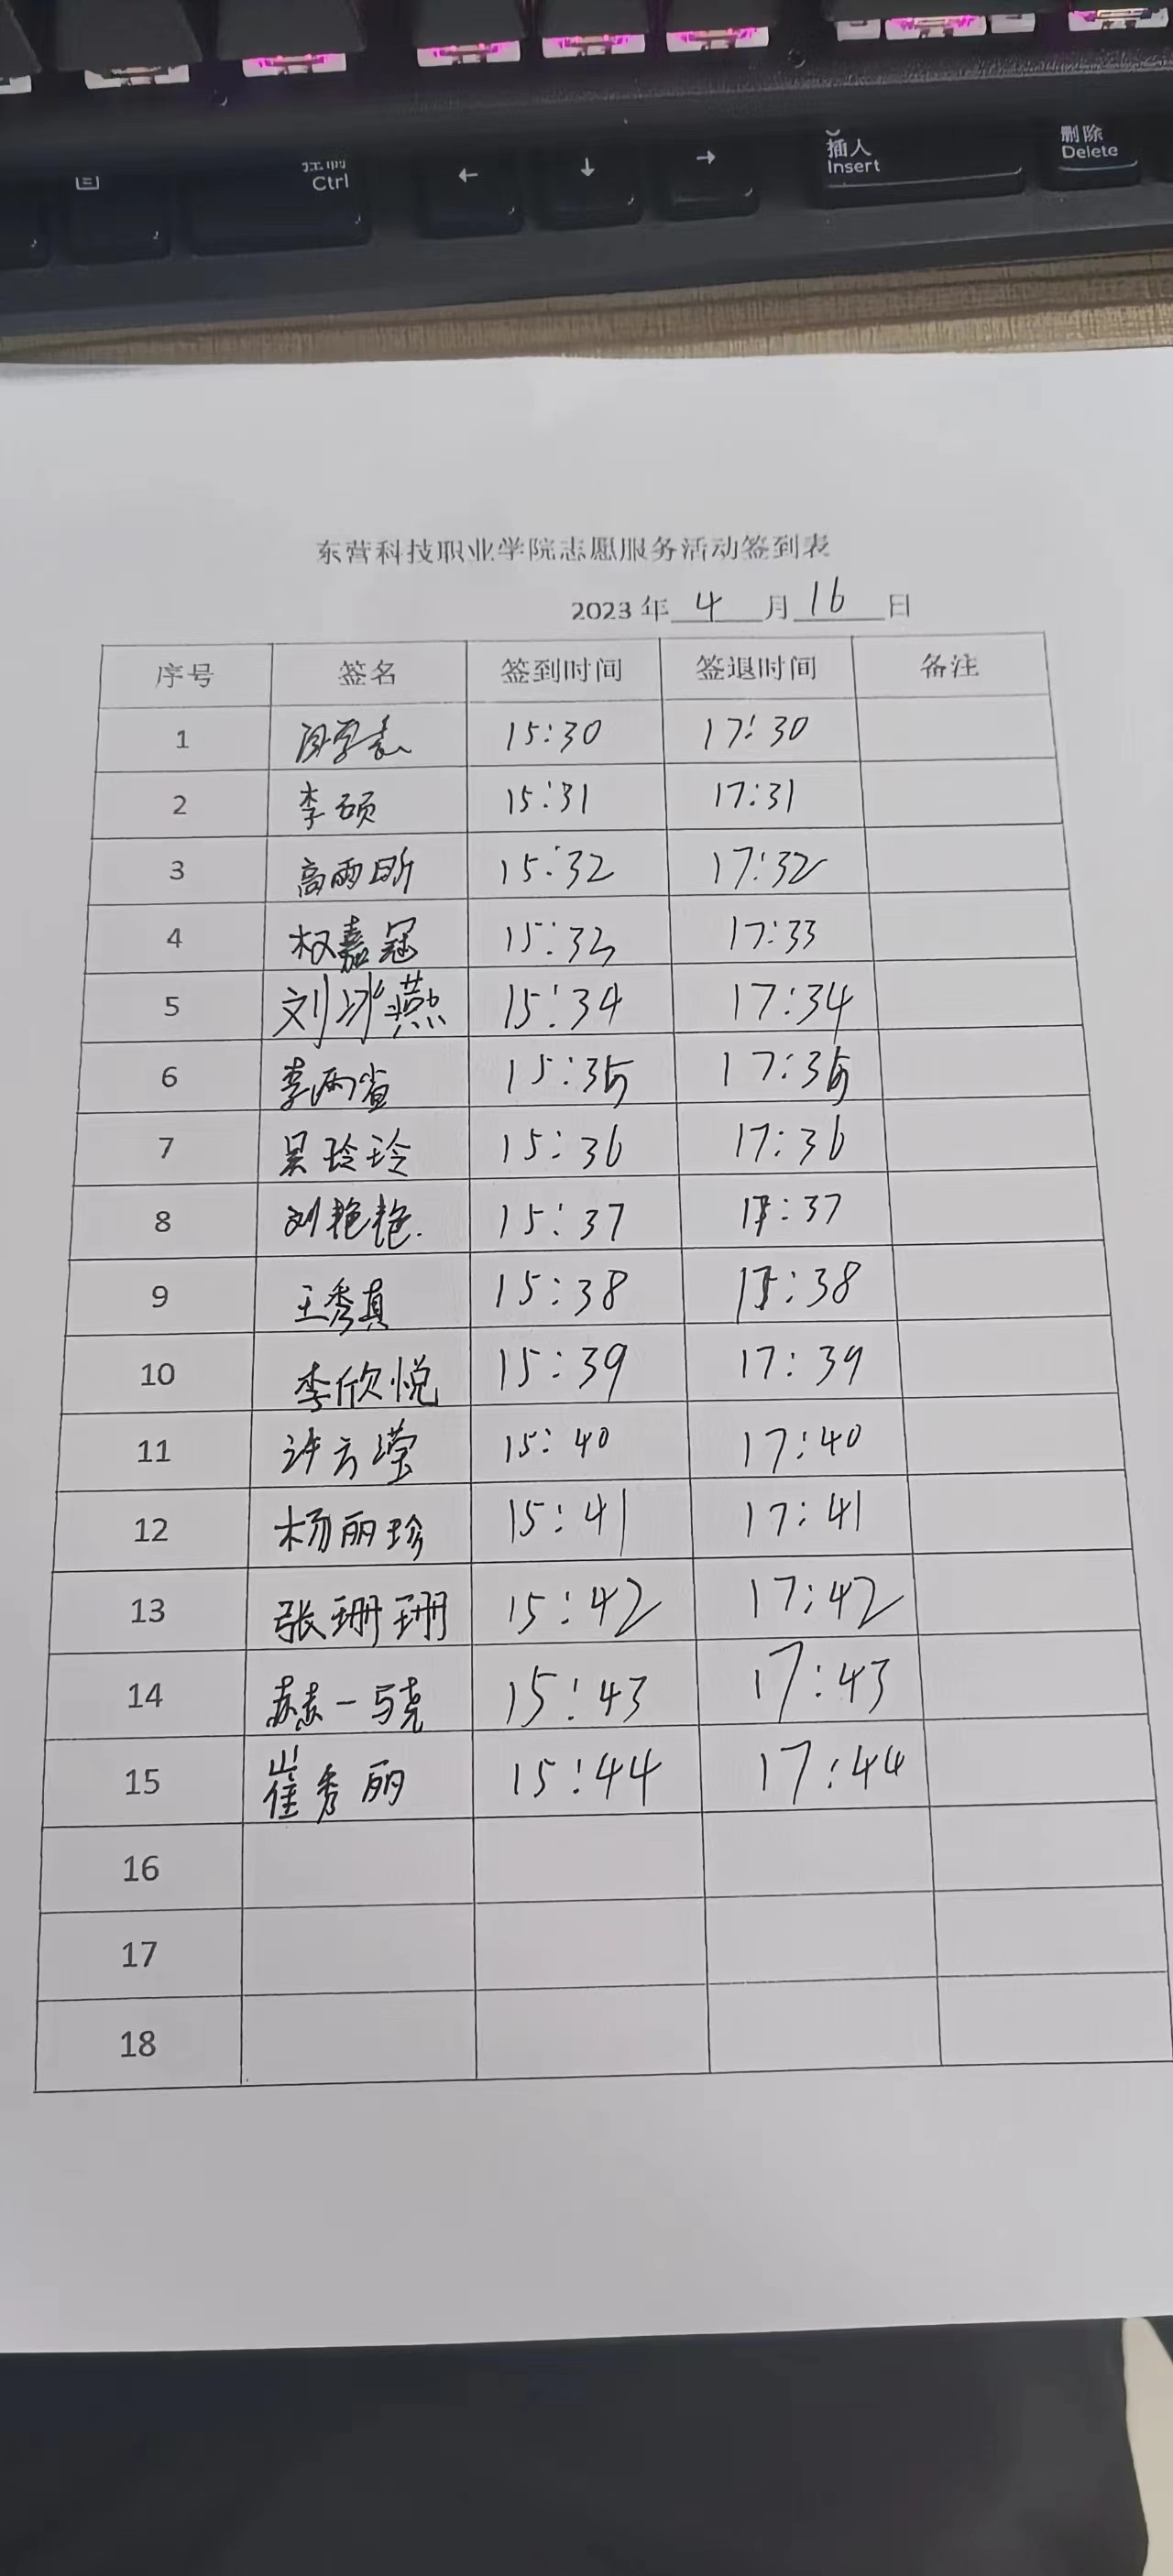 Ctrl
←
↓
→
插入
Insert
删除
Delete
东营科技职业学院志愿服务活动签到表
2023 年 4 月 16 日
序号 签名 签到时间 签退时间 备注
1 15:30 17:30
2 李硕 15:31 17:31
3 高雨昕 15:32 17:32
4 权嘉冠 15:33 17:33
5 刘冰燕 15:34 17:34
6 李 15:35 17:35
7 吴玲玲 15:36 17:36
8 刘艳艳 15:37 17:37
9 王秀真 15:38 17:38
10 李欣悦 15:39 17:39
11 许方滢 15:40 17:40
12 杨丽珍 15:41 17:41
13 张珊珊 15:42 17:42
14 赫一 15:43 17:43
15 崔秀丽 15:44 17:44
16
17
18